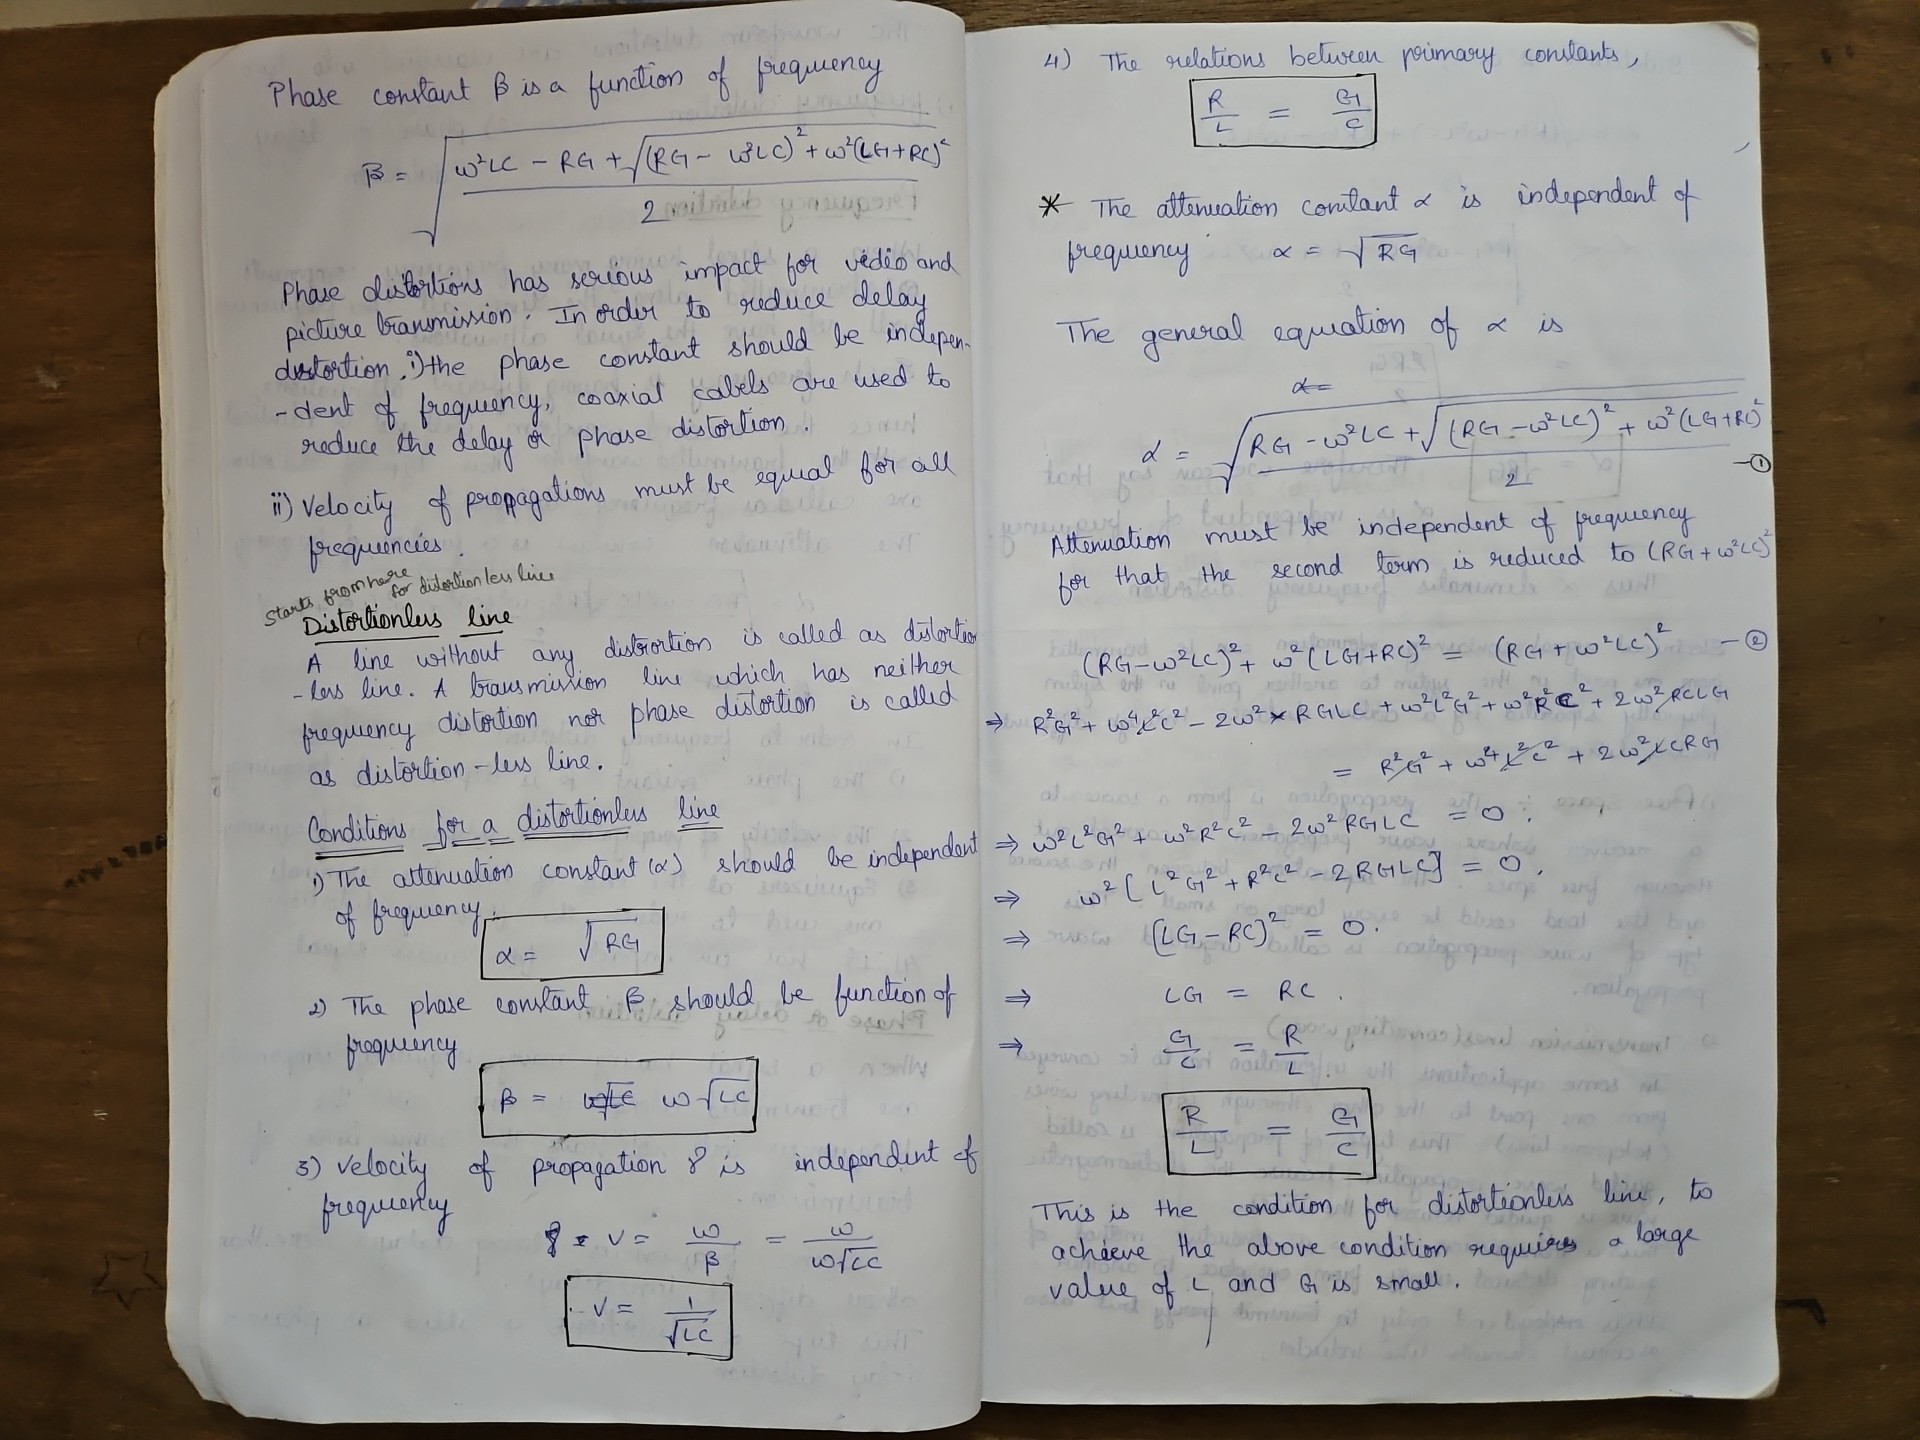 Phase constant β is a function of frequency
β = √((ω²LC - RG + √((RG - ω²LC)² + ω²(LG+RC)²)) / 2)
Phase distortions has serious impact for video and
picture transmission. In order to reduce delay
distortion. i) the phase constant should be indepen-
-dent of frequency, coaxial cabels are used to
reduce the delay or phase distortion.
ii) Velocity of propagations must be equal for all
frequencies.
Starts from here
for distortionless line
Distortionless line
A line without any distrortion is called as distortion
-less line. A transmission line which has neither
frequency distortion nor phase distortion is called
as distortion-less line.
Conditions for a distortionless line
1) The attenuation constant (α) should be independent
of frequency.
α = √RG
2) The phase constant β should be function of
frequency
β = ω√LC
3) Velocity of propagation γ is independent of
frequency
v = ω/β = ω/ω√LC
v = 1/√LC
4) The relations between primary constants,
R/L = G/C
* The attenuation constant α is independent of
frequency α = √RG
The general equation of α is
α =
α = √((RG - ω²LC + √((RG - ω²LC)² + ω²(LG+RC)²)) / 2) -①
Attenuation must be independent of frequency
for that the second term is reduced to (RG+ω²LC)²
(RG-ω²LC)² + ω²(LG+RC)² = (RG+ω²LC)² -②
⇒ R²G² + ω⁴L²C² - 2ω² RGLC + ω²L²G² + ω²R²C² + 2ω²RCLG
= R²G² + ω⁴L²C² + 2ω²LCRG
⇒ ω²L²G² + ω²R²C² - 2ω²RGLC = 0.
⇒ ω²[L²G² + R²C² - 2RGLC] = 0.
⇒ (LG-RC)² = 0.
⇒ LG = RC.
⇒ G/C = R/L.
R/L = G/C
This is the condition for distortionless line, to
achieve the above condition requires a large
value of L and G is small.